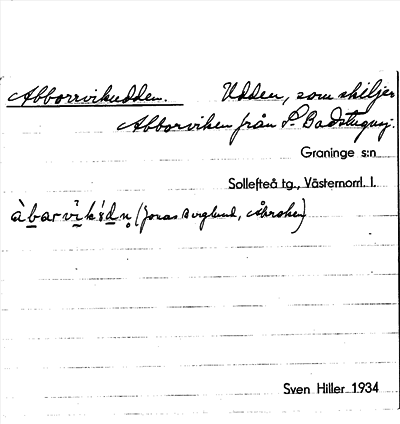 Abborrvikudden. Udden, som skiljer
Abborviken från S. Badstuguvj.
Graninge s:n
Sollefteå tg., Västernorrl. l.
(Jonas Berglund, Åkroken)
Sven Hiller 1934